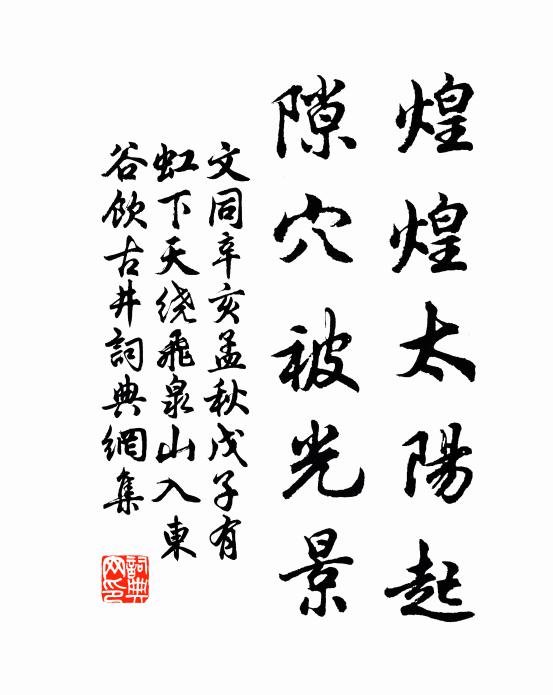 煌煌太陽起
隙穴被光景
文同辛亥孟秋戊子有
虹下天绕飛泉山入東
谷飲古井詞典網集
詞典网印